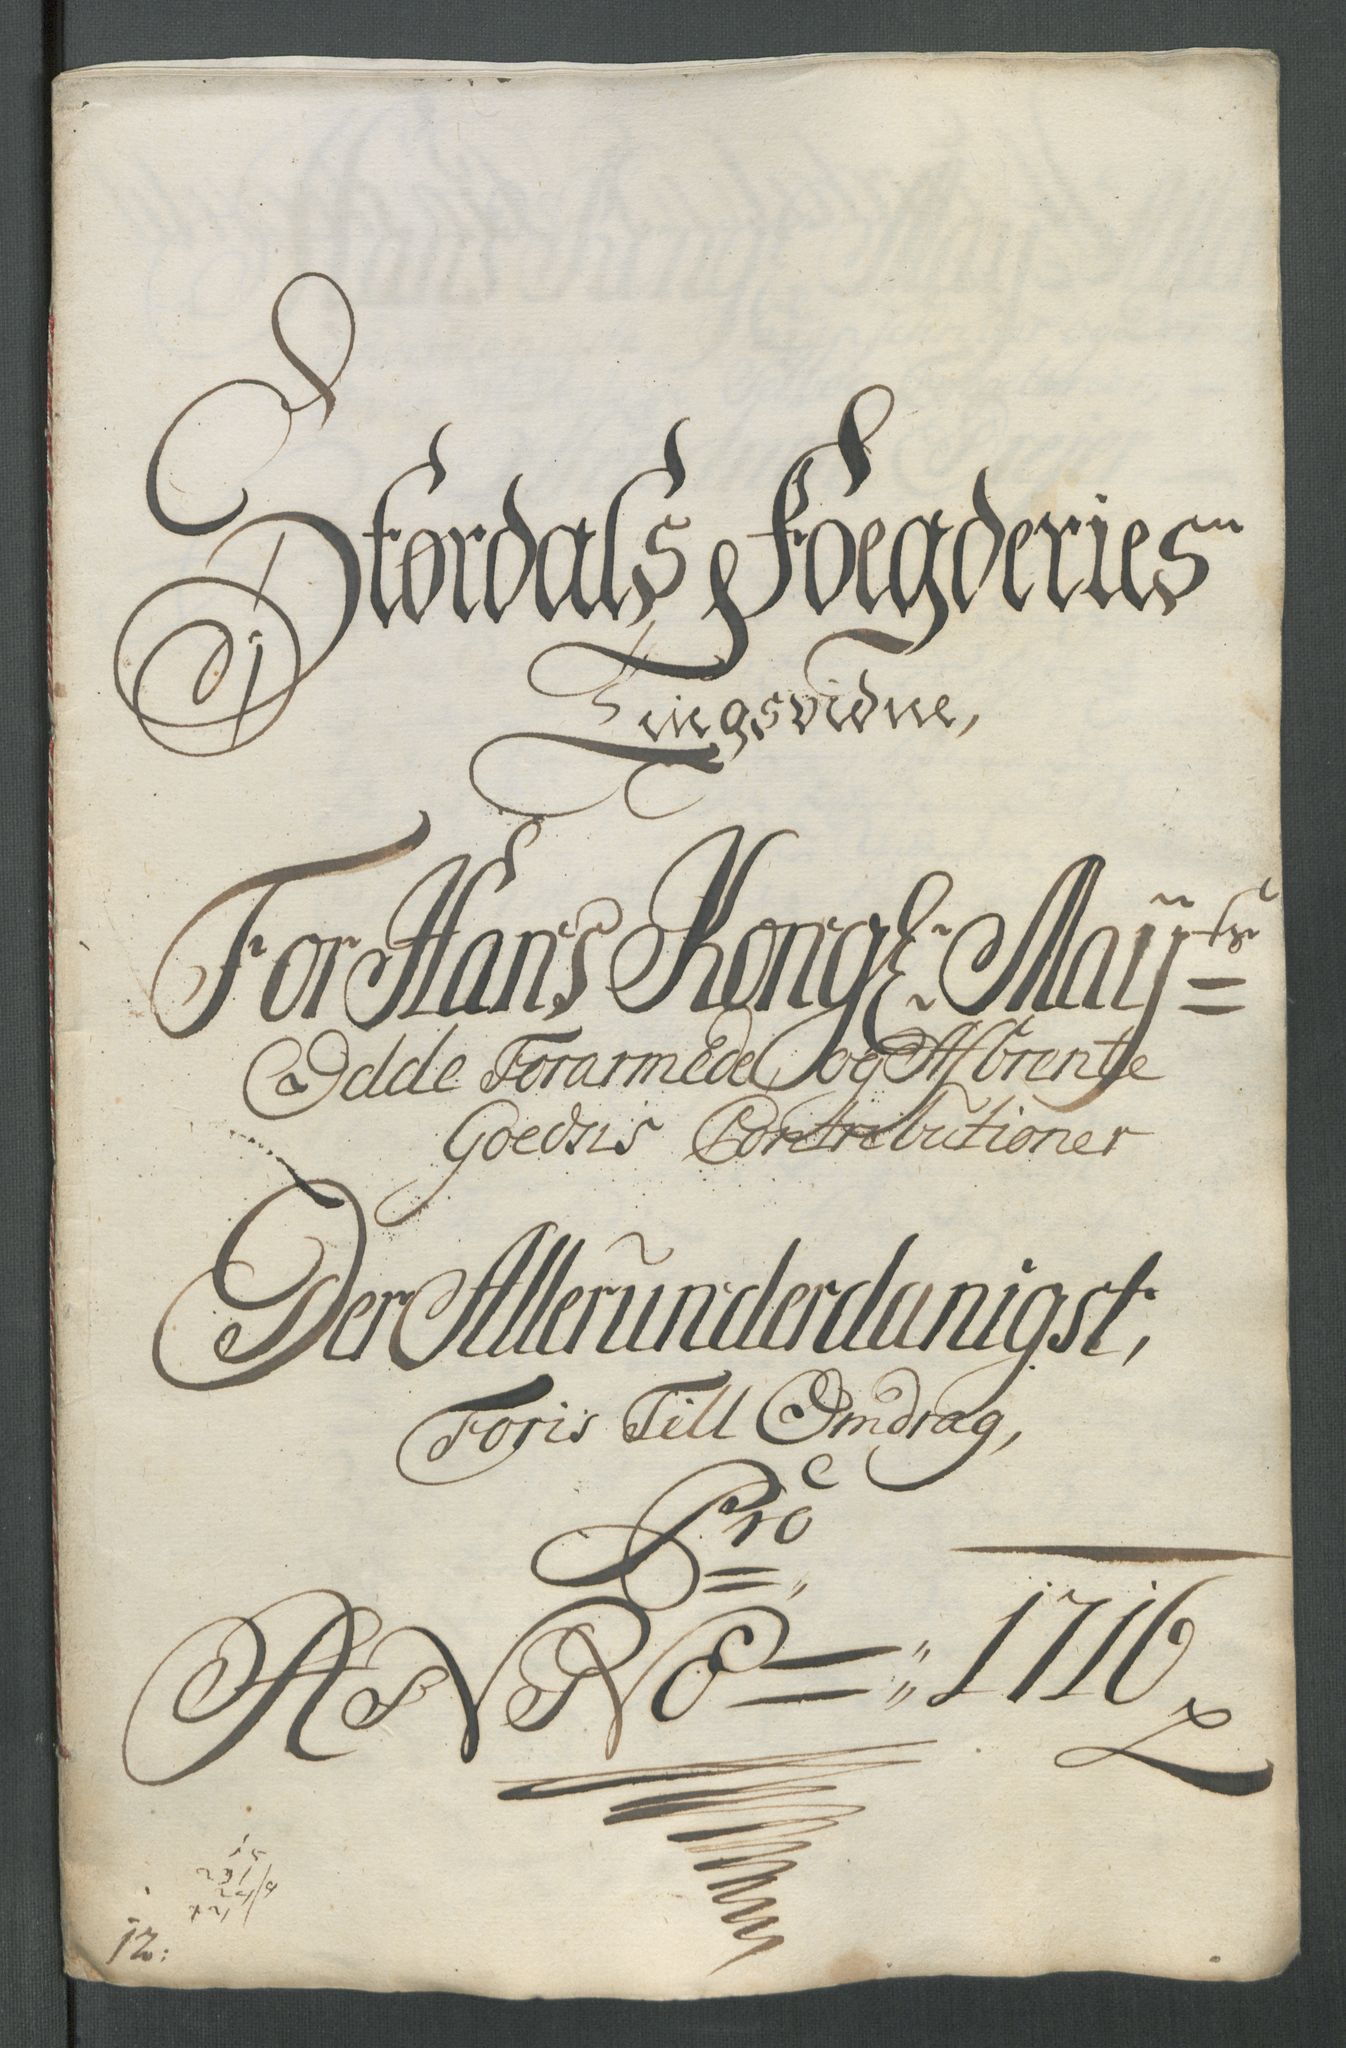 Størdals Foegderies
Tingsvidne,
For Hans Kongl: Maÿ=ts
Ødde Forarmede og Afbrente
Goedsis Contributioner
Der Allerunderdanigst,
Foris Till Omdrag,
Pro
ANNO = 1716
12: